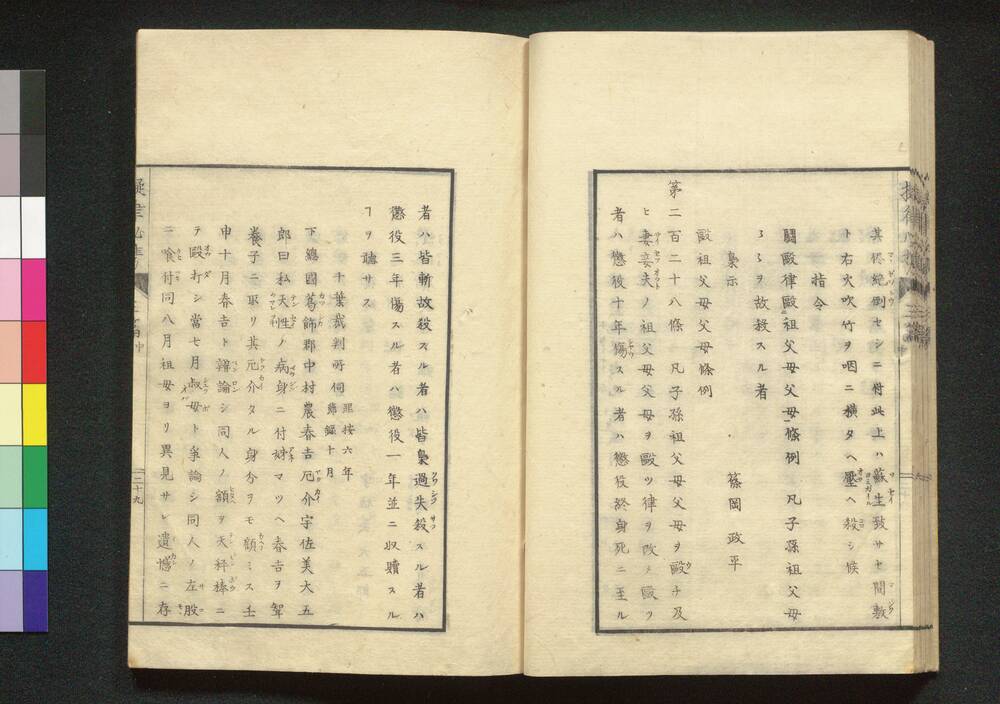 其侭絶倒セシニ付此上ハ蘇生致サセ間敷
ト右火吹竹ヲ咽ニ横タヘ壓ヘ殺シ候
指令
鬪毆律毆祖父母父母條例 凡子孫祖父母
ヨヲ故殺スル者
梟示 篠岡政平
毆祖父母父母條例
第二百二十八條 凡子孫祖父母父母ヲ毆チ及
ヒ妻妾夫ノ祖父母父母ヲ毆ツ律ヲ改メ毆ツ
者ハ懲役十年傷スル者ハ懲役終身死ニ至ル
者ハ皆斬故殺スル者ハ皆梟過失殺スル者ハ
懲役三年傷スル者ハ懲役一年並ニ収贖スル
ヿヲ聽サス
千葉裁判所伺 六年 十月
下總國葛飾郡中村農春吉厄介宇佐美大五
郎曰私天性ノ病身ニ付姉マツヘ春吉ヲ聟
養子ニ取リ其厄介タル身分ヲモ顧ミス壬
申十月春吉ト諍論シ同人ノ額ヲ天秤棒ニ
テ毆打シ當七月叔母ト爭論シ同人ノ左股
ニ食付同八月祖母ヨリ異見サレ遺憾ニ存
三十九